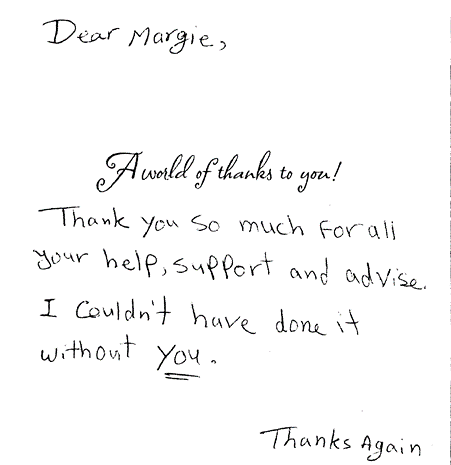 Dear Margie,
A world of thanks to you!
Thank you so much for all
your help, support and advise.
I couldn't have done it
without you.
Thanks Again